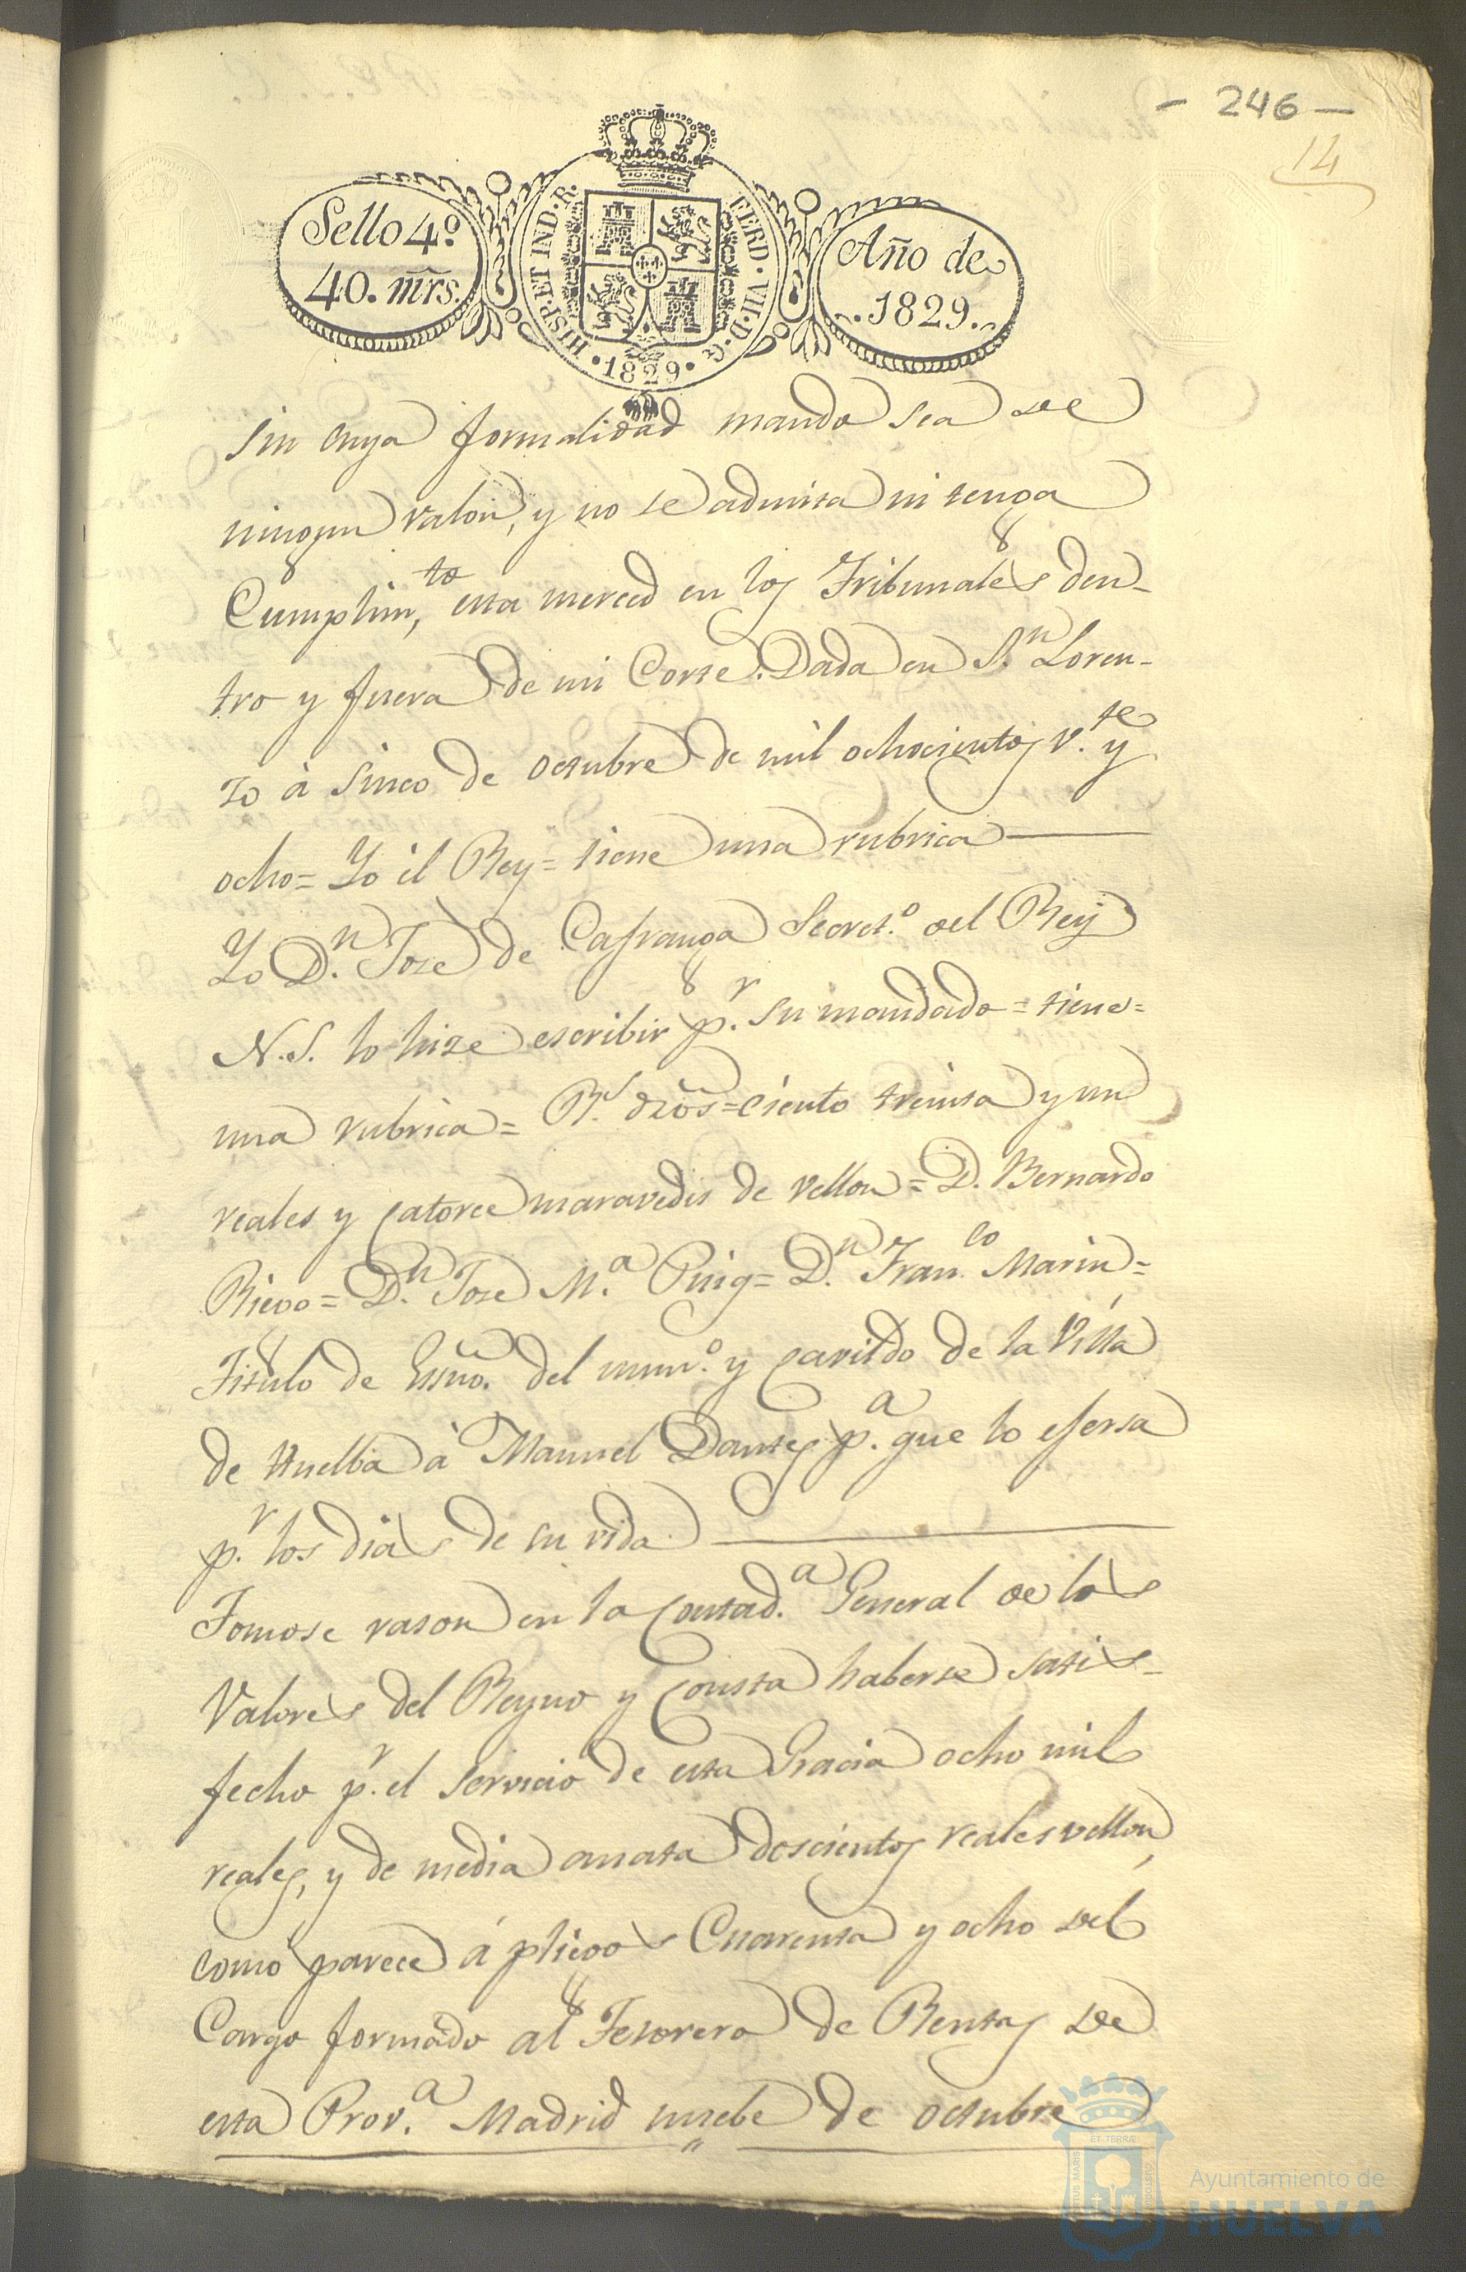 - 246 -
14
Sello 4º
40. mrs.
HISP. ET IND. R.
FERD. VII. D. G.
1829
Año de
1829.
sin cuya formalidad mando sea de
ningun valor, y no se admita ni tenga
Cumplimto, esta merced en los Tribunales den-
tro y fuera de mi Corte. Dada en Sn Loren-
zo à sinco de octubre de mil ochocientos v.te y
ocho= Yo èl Rey= tiene una rubrica
Yo D.n Jose de Cafranga Secret.o del Rey
N.S. lo hize escribir p.r su mandado = tiene=
una rubrica= R.s dros= ciento treinta y un
reales y catorce maravedis de vellon= D. Bernardo
Riego= D.n Jose M.a Puig= D.n Fran.co Marin=
Titulo de Essno. del num.o y cavildo de la Villa
de Huelba à Manuel Dantes p.a que lo ejersa
p.r los dias de su vida
Tomose rason en la Contad.a General de los
Valores del Reyno y consta haberse satis-
fecho p.r el servicio de esta Gracia ocho mil
reales, y de media anata doscientos reales vellon,
como parece á pliegos Cuarenta y ocho del
Cargo formado al Tesorero de Rentas de
esta Prov.a Madrid nuebe de octubre
ET TERRÆ
Ayuntamiento de
HUELVA